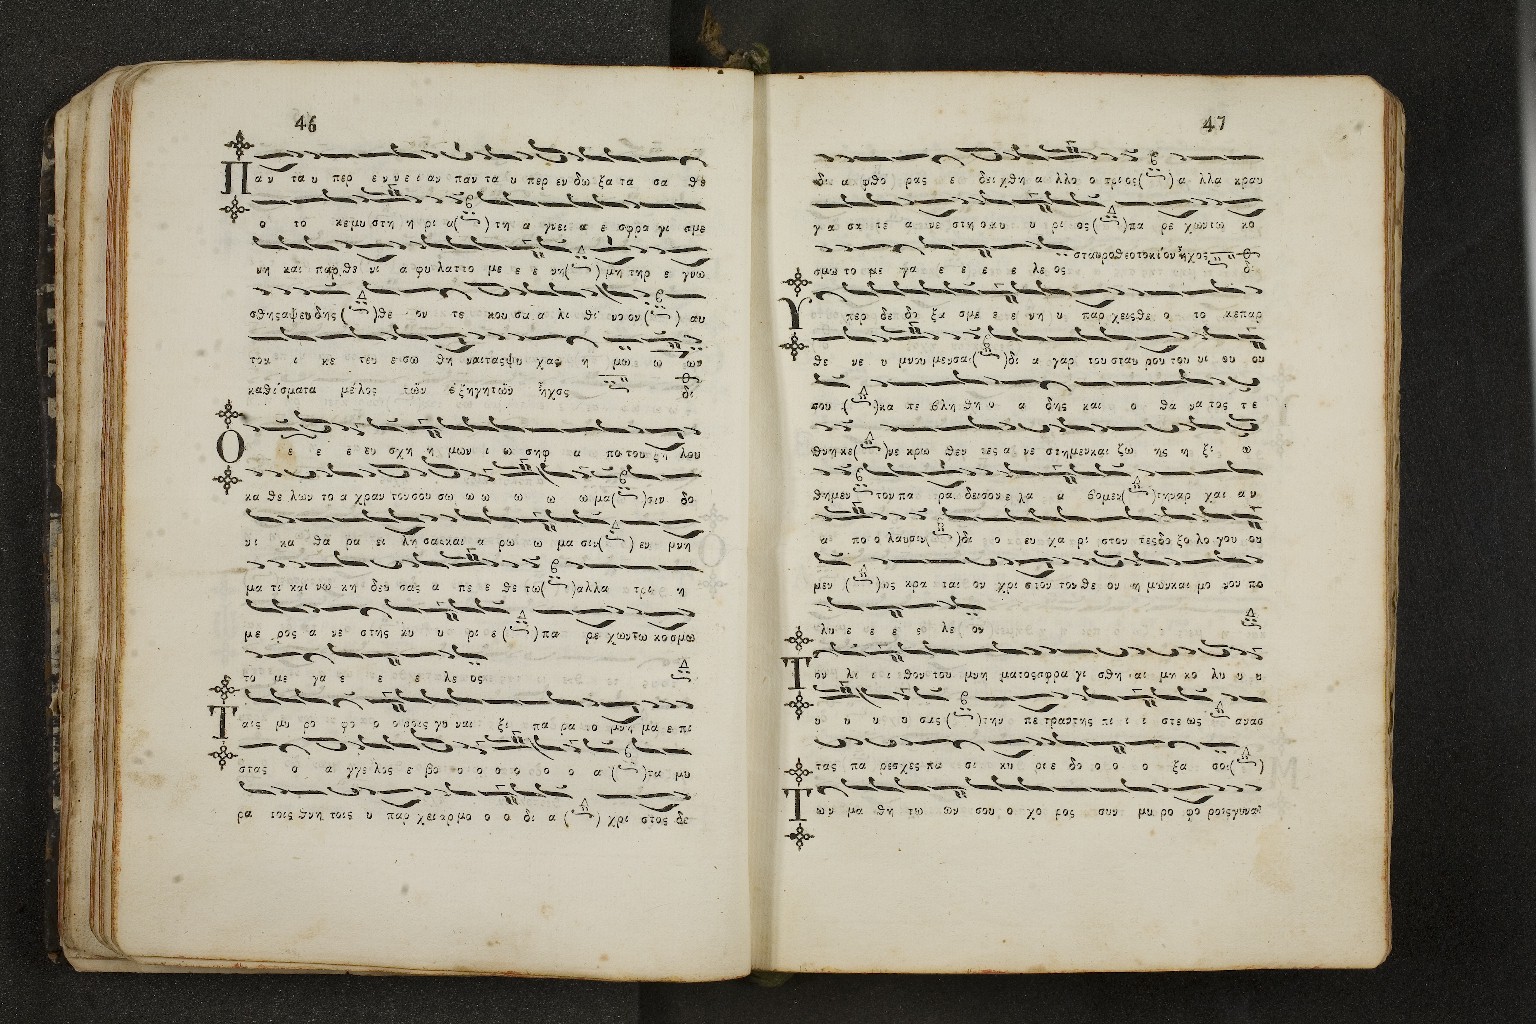 46
Π αν τα υ περ εν νε ι αν παν τα υ περ εν δω ξα τα σα θε
ο το κε μυ στη η ρι α( )τη α γνει α ε σφρα γι σμε
νη και παρ θε νι α φυ λατ το με ε ε νη( )μη τηρ ε γνω
σθης α ψευ δης( )θε ον τε κου σα α λι θι νο ον( )αυ
τον ι κε τευ ε σω θη ναι τας ψυ χας η μω ω ων
καθίσματα μέλος τῶν ἐξηγητῶν ἦχος δι
Ο ε ε ε ευ σχη η μων ι ω σηφ α πο του ξυ λου
κα θε λων το α χραν τον σου σω ω ω ω ω ω μα( )σιν δο
νι κα θα ρα ει λη σας και α ρω ω μα σιν( )εν μνη
μα τι και νω κη δευ σας α πε ε θε τω( )αλλα τρι η
με ρος α νε στης κυ υ ρι ε( )πα ρε χων τω κο σμω
το με γα ε ε ε λε ος
Τ αις μυ ρο φο ο ο ροις γυ ναι ξι πα ρα το μνη μα ε πι
στας ο α γγε λος ε βο ο ο ο ο ο ο α( )τα μυ
ρα τοις θνη τοις υ παρ χει αρ μο ο ο δι α( )χρι στος δε
47
δι α φθο ρας ε δει χθη α λλο ο τρι ος( )α λλα κραυ
γα σα τε α νε στη ο κυ υ ρι ος( )πα ρε χων τω κο
σμω το με γα ε ε ε ε λε ος σταυροθεοτοκίον ἦχος δ:
Υ περ δε δο ξα σμε ε ε νη υ παρ χεις θε ο το κε παρ
θε νε υ μνου μεν σαι( )δι α γαρ του σταυ ρου του υι ου ου
σου( )κα τε βλη θη ο α δης και ο θα να τος τε
θνη κε( )νε κρω θεν τες α νε στη μεν και ζω ης η ξι ω
θη μεν( )τον πα ρα δει σον ε λα α βο μεν( )την αρ χαι αν
α πο ο λαυ σιν( )δι ο ευ χα ρι στουν τες δο ξο λο γου ου
μεν( )ως κρα ται ον χρι στον τον θε ον η μων και μο νον πο
λυ ε ε ε ε λε ον
Τ ου λι ι ι θου του μνη μα τος σφρα γι σθη αι μη κο λυ υ υ
υ υ υ υ σας( )την πε τραν της πι ι ι στε ως ανασ
τας πα ρε σχες πα σι κυ ρι ε δο ο ο ο ξα σοι( )
Τ ων μα θη τω ων σου ο χο ρος συν μυ ρο φο ροις γυναι